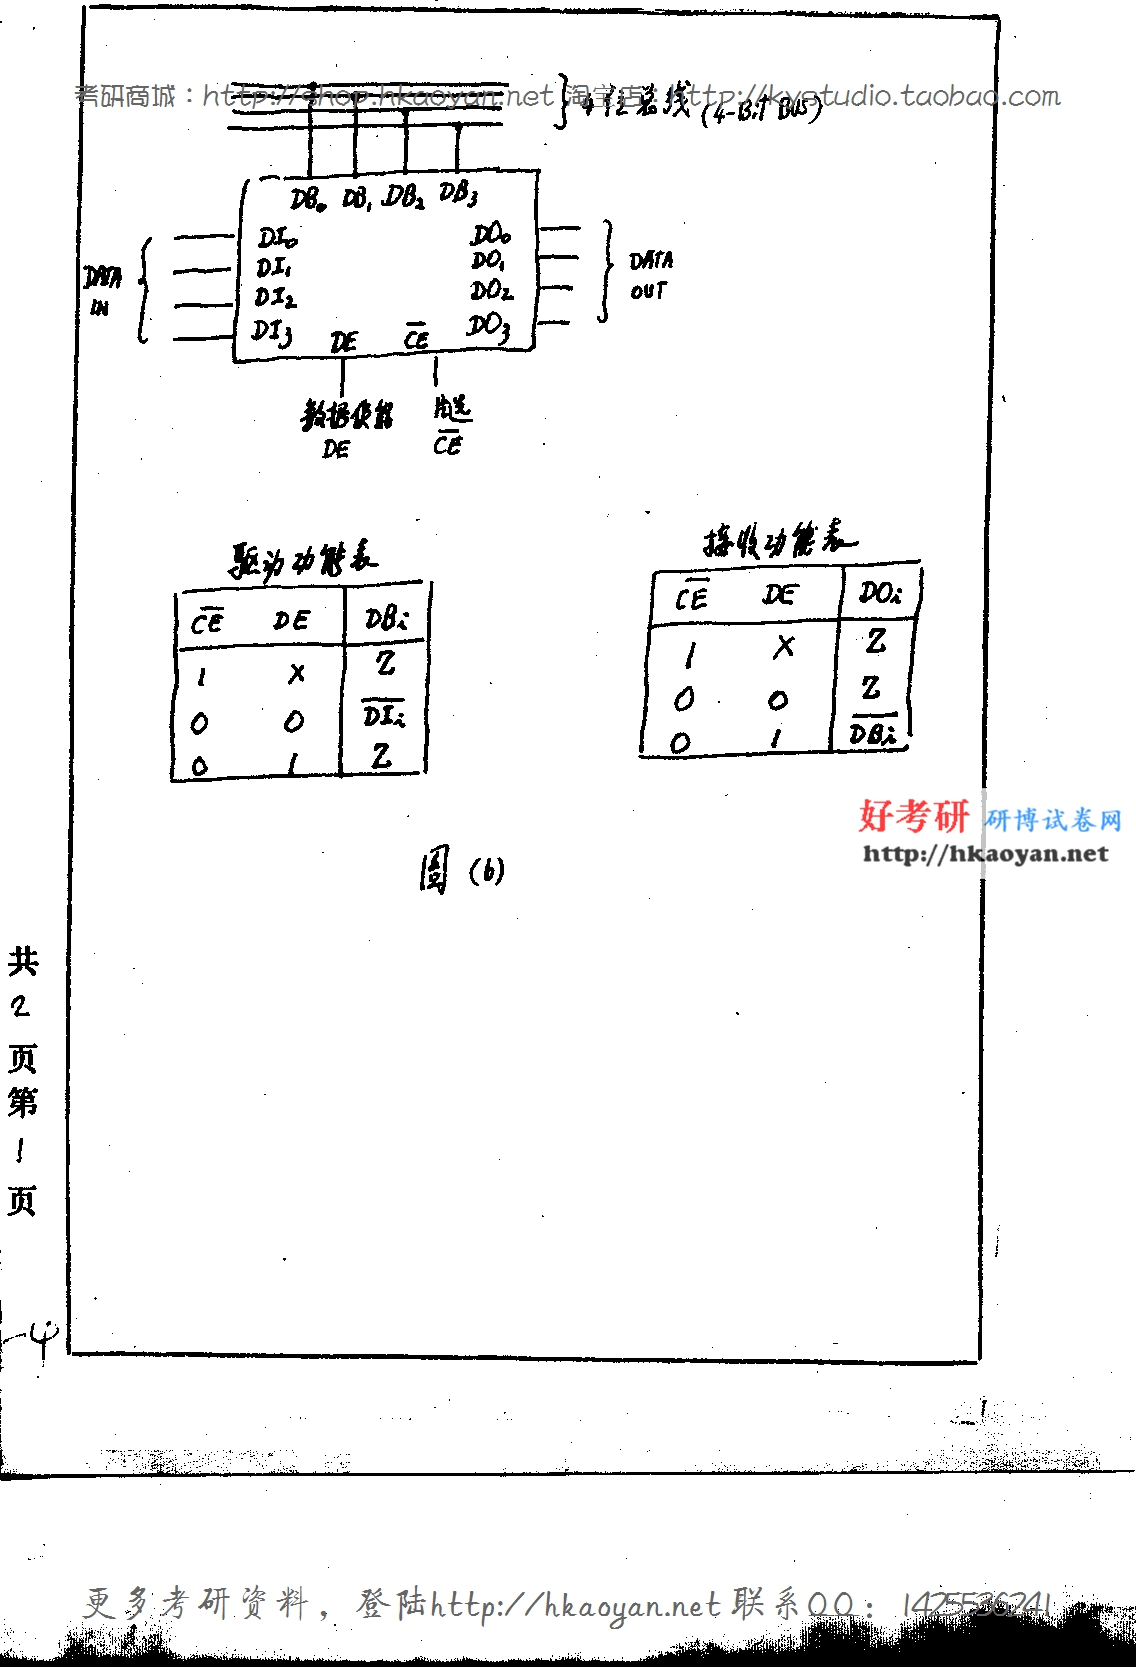 考研商城：http://shop.hkaoyan.net 淘宝店：http://kystudio.taobao.com
4位总线 (4-BiT BUS)
DB₀ DB₁ DB₂ DB₃
DI₀ DO₀
DI₁ DO₁
DATA IN DI₂ DO₂ DATA OUT
DI₃ DE C̅E̅ DO₃
数据使能 片选
DE C̅E̅
驱动功能表
C̅E̅ DE DBi
1 X Z
0 0 D̅I̅i̅
0 1 Z
接收功能表
C̅E̅ DE DOi
1 X Z
0 0 Z
0 1 D̅B̅i̅
好考研 研博试卷网
http://hkaoyan.net
图 (b)
共
2
页
第
1
页
更多考研资料，登陆http://hkaoyan.net 联系QQ：1425536241